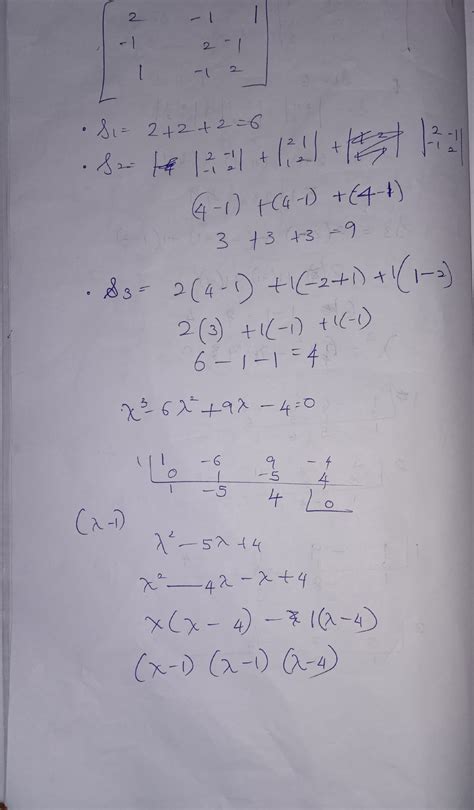 2 -1 1
-1 2 -1
1 -1 2
• S1 = 2+2+2=6
• S2 = |2 -1 -1 2| + |2 1 1 2| + |2 -1 -1 2|
(4-1) +(4-1) +(4-1)
3 +3 +3 =9
• S3 = 2(4-1) +1(-2+1) +1(1-2)
2(3) +1(-1) +1(-1)
6 -1 -1 =4
λ³-6λ²+9λ-4=0
1 1 -6 9 -4
0 1 -5 4
1 -5 4 0
(λ-1)
λ²-5λ+4
λ²-4λ-λ+4
λ(λ-4) - 1(λ-4)
(λ-1) (λ-1) (λ-4)